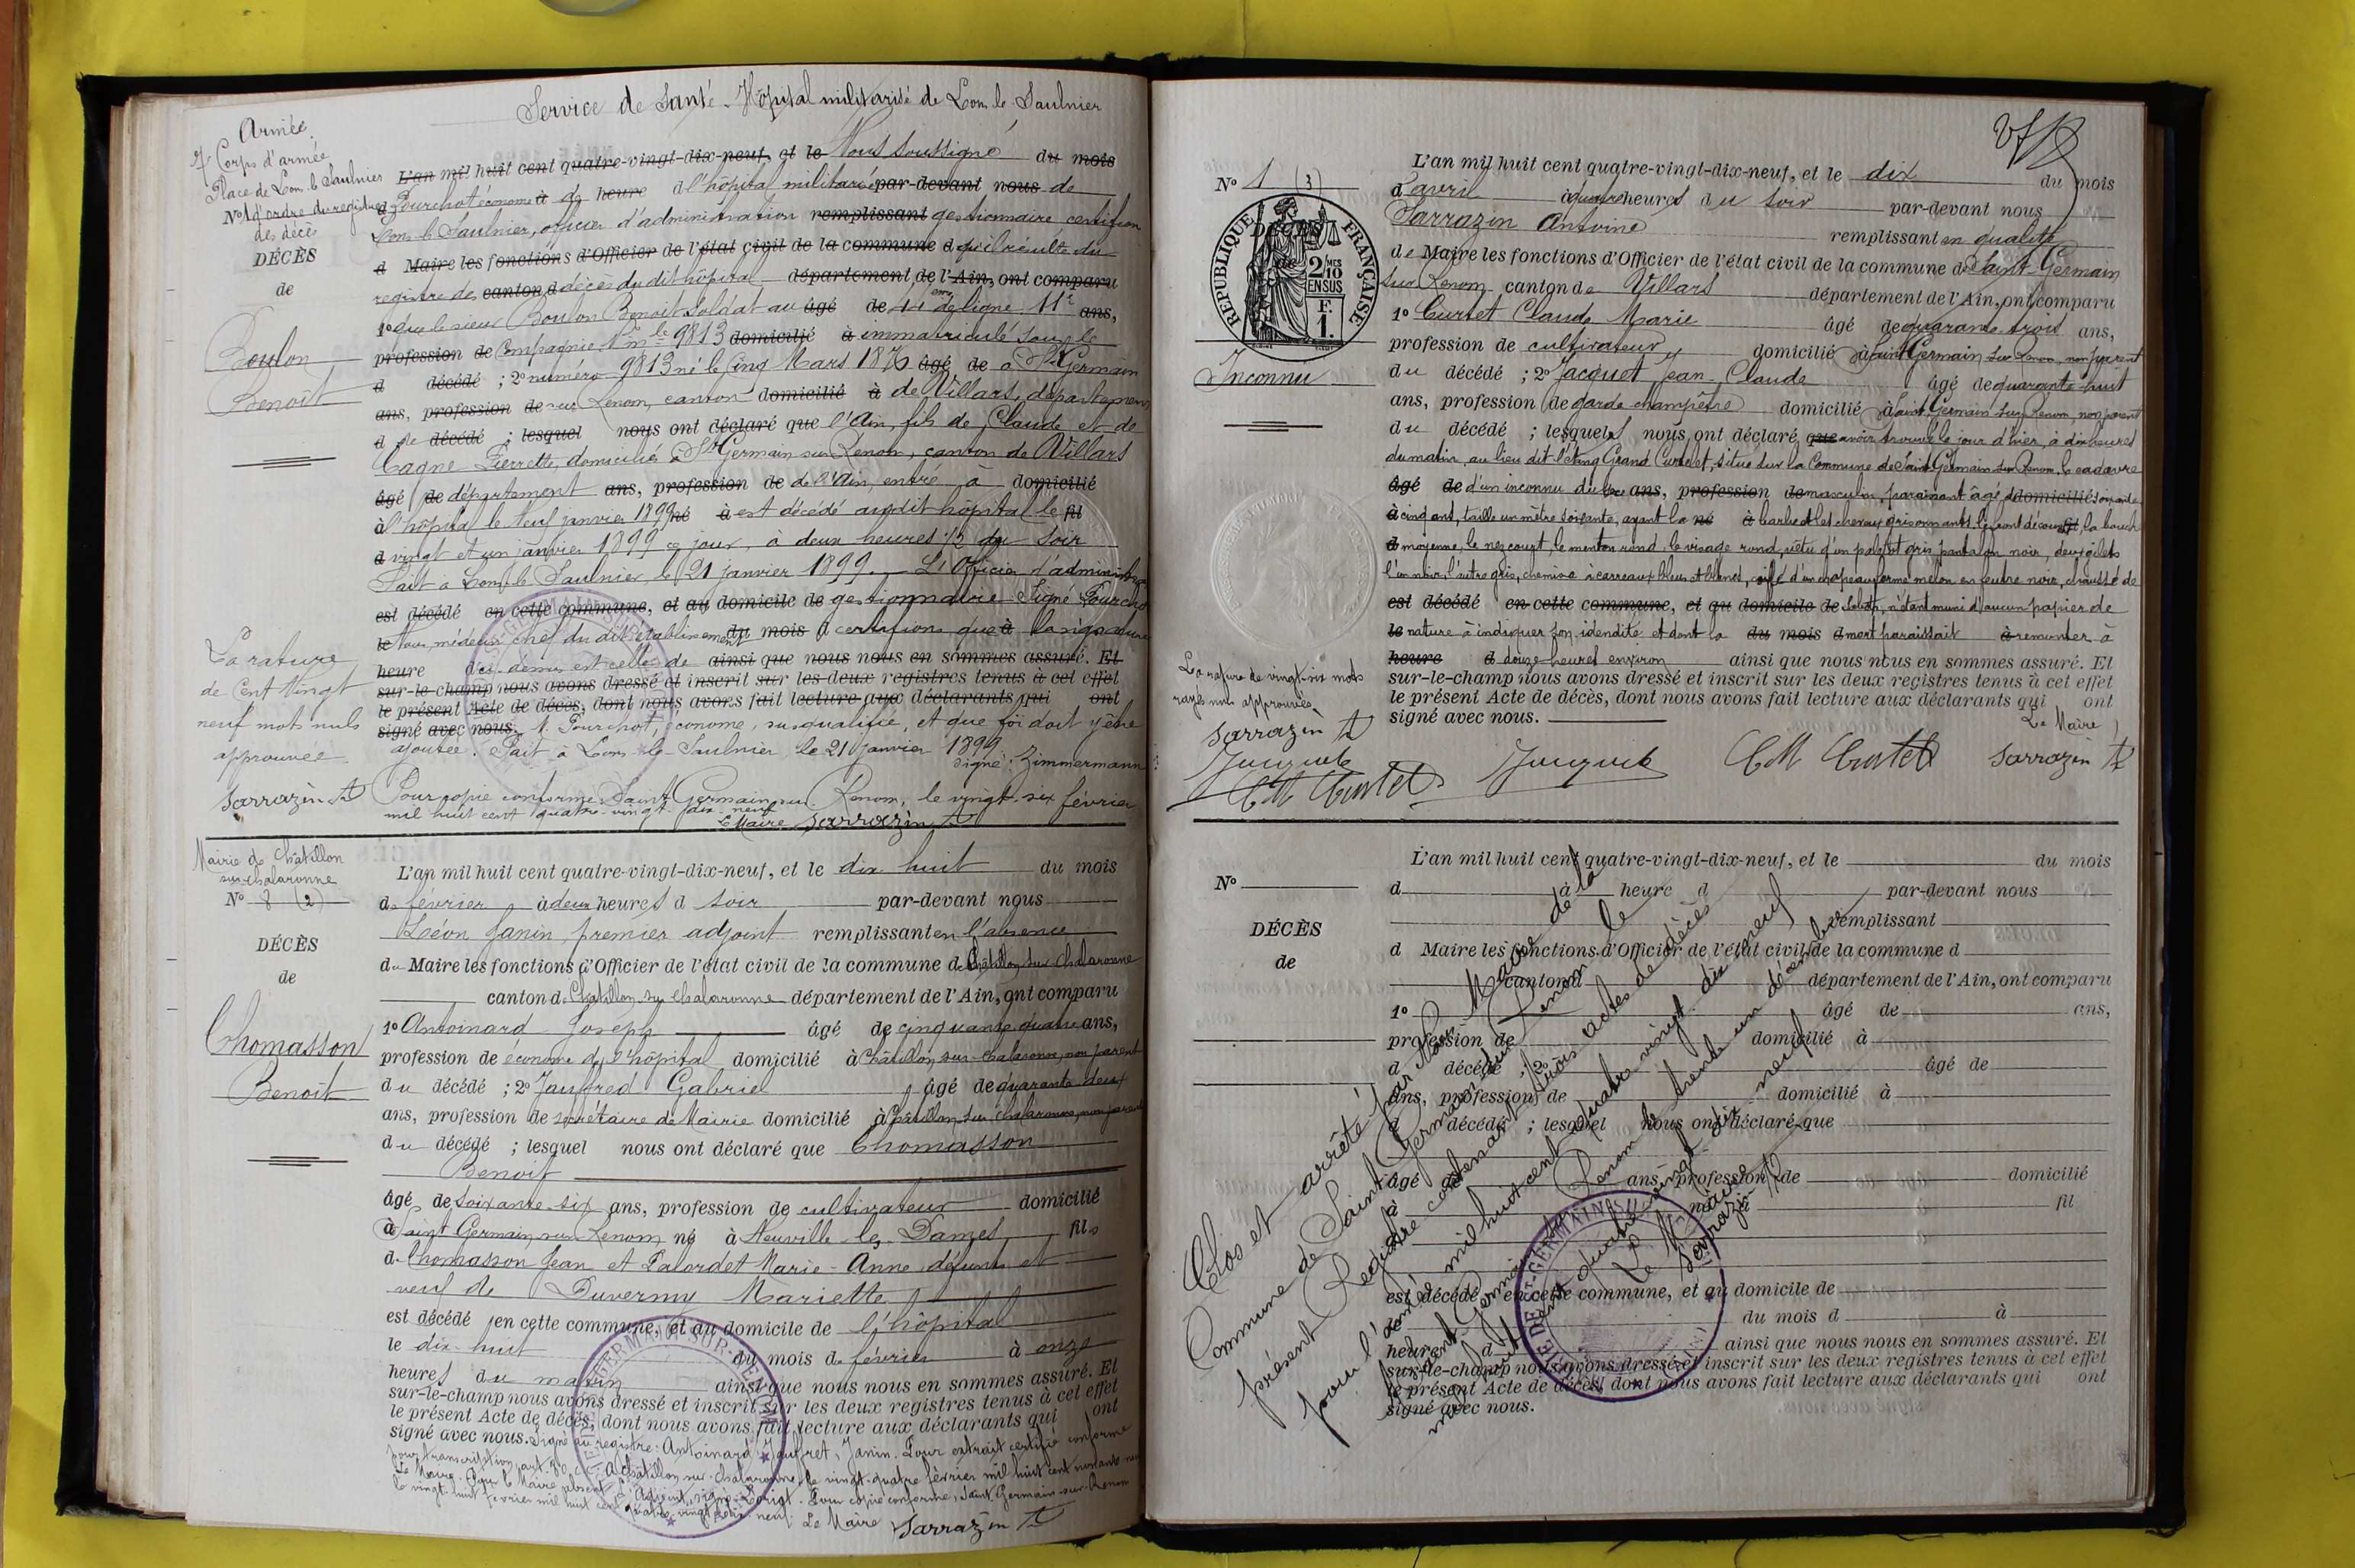 Service de Santé - Hôpital militarisé de Lons le Saulnier
Armée
7 Corps d'armée
Place de Lons le Saulnier
No 1 d'ordre du registre
des décès
DÉCÈS
de
Boulon
Benoit
L'an mil huit cent quatre-vingt-dix-neuf, et le Nous soussigné du mois
d Pourchot économe à de heure à l'hôpital militarisé par-devant nous de
Lons le Saulnier, officier d'administration remplissant gestionnaire certifions
d Maire les fonctions d'Officier de l'état civil de la commune d qu'il résulte du
registre des canton d décès du dit hôpital département de l'Ain, ont comparu
1o que le sieur Boulon Benoit soldat au âgé de 44 eme de ligne 11e ans,
profession de Compagnie, No mle 9813 domicilié à immatriculé sous le
d décédé ; 2o numéro 9813 né le cinq Mars 1876 âgé de à St Germain
ans, profession de sur Renom, canton domicilié à de Villars, département
d de décédé ; lesquel nous ont déclaré que l'Ain, fils de Claude et de
Cagne Pierrette, domiciliés à St Germain sur Renom, canton de Villars
âgé de département ans, profession de de l'Ain, entré à domicilié
à l'hôpital le Neuf janvier 1899 né à est décédé audit hôpital le fil
d vingt et un janvier 1899 ce jour, à deux heures 1/2 du soir
Fait à Lons le Saulnier le 21 janvier 1899. L'Officier d'administration
est décédé en cette commune, et au domicile de gestionnaire Signé Pourchot
le Nous, médecin chef du dit établissement du mois d certifions que à la signature
heure d ci-dessus est celle de ainsi que nous nous en sommes assuré. Et
sur-le-champ nous avons dressé et inscrit sur les deux registres tenus à cet effet
le présent Acte de décès, dont nous avons fait lecture aux déclarants qui ont
signé avec nous. M. Pourchot, économe, susqualifié, et que foi doit y être
ajoutée. Fait à Lons-le-Saulnier, le 21 janvier 1899.
signé: Zimmermann
Pour copie conforme: Saint Germain sur Renom, le vingt-six février
mil huit cent quatre-vingt-dix-neuf
Le Maire Sarrazin A
La rature
de Cent Vingt
neuf mots nuls
approuvée
Sarrazin A
Mairie de Châtillon
sur-Chalaronne
No 8 (2)
DÉCÈS
de
Thomasson
Benoît
L'an mil huit cent quatre-vingt-dix-neuf, et le dix huit du mois
de février à deux heures d soir par-devant nous
Léon Janin, premier adjoint remplissant en l'absence
du Maire les fonctions d'Officier de l'état civil de la commune de Châtillon sur Chalaronne
canton de Châtillon sur Chalaronne département de l'Ain, ont comparu
1o Antoinard Joseph âgé de cinquante quatre ans,
profession de économe de l'hôpital domicilié à Châtillon sur Chalaronne, non parent
du décédé ; 2o Jauffred Gabriel âgé de quarante deux
ans, profession de secrétaire de Mairie domicilié à Châtillon sur Chalaronne, non parent
du décédé ; lesquel nous ont déclaré que Thomasson
Benoit
âgé de soixante-six ans, profession de cultivateur domicilié
à Saint Germain sur Renom né à Neuville-les-Dames fils
de Thomasson Jean et Palordet Marie-Anne, défunts et
veuf de Duverny Mariette
est décédé en cette commune, et au domicile de l'hôpital
le dix-huit du mois de février à onze
heures du matin ainsi que nous nous en sommes assuré. Et
sur-le-champ nous avons dressé et inscrit sur les deux registres tenus à cet effet
le présent Acte de décès, dont nous avons fait lecture aux déclarants qui ont
signé avec nous. Signé au registre: Antoinard, Jauffret, Janin. Pour extrait certifié conforme
pour transcription, art. 80, c.c. à Châtillon sur-Chalaronne, le vingt-quatre février mil huit cent nonante neuf
Le Maire. Pour le Maire absent, L'Adjoint, signé: Loriot. Pour copie conforme, Saint Germain-sur-Renom
le vingt-huit février mil huit cent quatre-vingt-dix-neuf. Le Maire Sarrazin A
No 1 (3)
RÉPUBLIQUE FRANÇAISE
DÉCÈS
de
2/10 MES EN SUS
F. 1.
Inconnu
L'an mil huit cent quatre-vingt-dix-neuf, et le dix du mois
d'avril à quatre heures du soir par-devant nous
Sarrazin Antoine remplissant en qualité
de Maire les fonctions d'Officier de l'état civil de la commune de Saint-Germain
sur Renom canton de Villars département de l'Ain, ont comparu
1o Curtet Claude Marie âgé de quarante-trois ans,
profession de cultivateur domicilié à Saint Germain sur Renom, non parent
du décédé ; 2o Jacquet Jean-Claude âgé de quarante-huit
ans, profession de garde champêtre domicilié à Saint Germain sur Renom, non parent
du décédé ; lesquels nous ont déclaré que avoir trouvé le jour d'hier, à dix heures
du matin, au lieu dit l'étang Grand Curtelet, situé sur la Commune de Saint Germain sur Renom, le cadavre
âgé de d'un inconnu du sexe ans, profession de masculin, paraissant âgé de domicilié soixante
à cinq ans, taille un mètre soixante, ayant la né à barbe et les cheveux grisonnants, le front découvert, la bouche
d moyenne, le nez court, le menton rond, le visage rond, vêtu d'un paletot gris, pantalon noir, deux gilets
l'un noir, l'autre gris, chemise à carreaux bleus et blancs, coiffé d'un chapeau forme melon en feutre noir, chaussé de
est décédé en cette commune, et au domicile de sabots, n'étant muni d'aucun papier de
le nature à indiquer son identité et dont la du mois d mort paraissait à remonter à
heure d douze heures environ ainsi que nous nous en sommes assuré. Et
sur-le-champ nous avons dressé et inscrit sur les deux registres tenus à cet effet
le présent Acte de décès, dont nous avons fait lecture aux déclarants qui ont
signé avec nous.
Le Maire
La rature de vingt-six mots
rayés nuls approuvée.
Sarrazin A
Jacquet
CM Curtet
Jacquet CM Curtet Sarrazin A
No
DÉCÈS
de
L'an mil huit cent quatre-vingt-dix-neuf, et le du mois
d à heure d par-devant nous
remplissant
d Maire les fonctions d'Officier de l'état civil de la commune d
canton d département de l'Ain, ont comparu
1o âgé de ans,
profession de domicilié à
d décédé ; 2o âgé de
ans, profession de domicilié à
d décédé ; lesquel nous ont déclaré que
âgé de ans, profession de domicilié
à né à fil
d
est décédé en cette commune, et au domicile de
le du mois d à
heure d ainsi que nous nous en sommes assuré. Et
sur-le-champ nous avons dressé et inscrit sur les deux registres tenus à cet effet
le présent Acte de décès, dont nous avons fait lecture aux déclarants qui ont
signé avec nous.
Clos et arrêté par Nous Maire de la
Commune de Saint Germain sur Renom le
présent Registre contenant trois actes de décès
pour l'année mil huit cent quatre vingt dix neuf
Saint Germain sur Renom le trente un décembre
mil huit cent quatre vingt dix neuf
Le Maire
Sarrazin A
MAIRIE DE ST-GERMAIN-SUR-RENOM